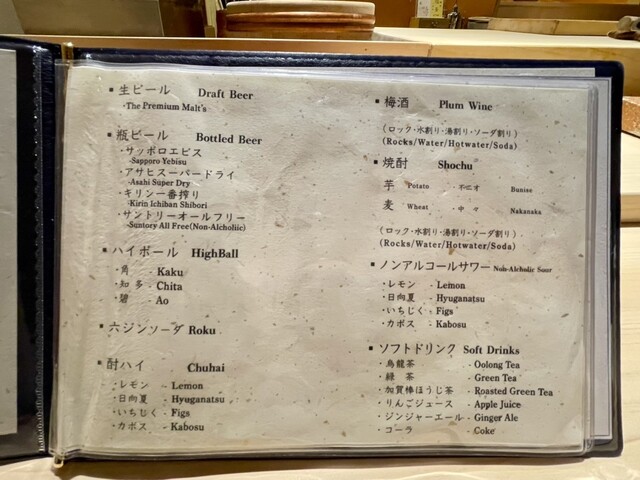 ▪生ビール Draft Beer
・The Premium Malt's
▪瓶ビール Bottled Beer
・サッポロエビス
-Sapporo Yebisu
・アサヒスーパードライ
-Asahi Super Dry
・キリン一番搾り
-Kirin Ichiban Shibori
・サントリーオールフリー
-Suntory All Free(Non-Alcholiic)
▪ハイボール HighBall
・角 - Kaku
・知多 - Chita
・碧 - Ao
▪六ジンソーダ Roku
▪酎ハイ Chuhai
・レモン - Lemon
・日向夏 - Hyuganatsu
・いちじく - Figs
・カボス - Kabosu
▪梅酒 Plum Wine
(ロック・水割り・湯割り・ソーダ割り)
(Rocks/Water/Hotwater/Soda)
▪焼酎 Shochu
芋 Potato 不二才 Bunise
麦 Wheat 中々 Nakanaka
(ロック・水割り・湯割り・ソーダ割り)
(Rocks/Water/Hotwater/Soda)
▪ノンアルコールサワー Non-Alcholic Sour
・レモン - Lemon
・日向夏 - Hyuganatsu
・いちじく - Figs
・カボス - Kabosu
▪ソフトドリンク Soft Drinks
・烏龍茶 - Oolong Tea
・緑 茶 - Green Tea
・加賀棒ほうじ茶 - Roasted Green Tea
・りんごジュース - Apple Juice
・ジンジャーエール - Ginger Ale
・コーラ - Coke